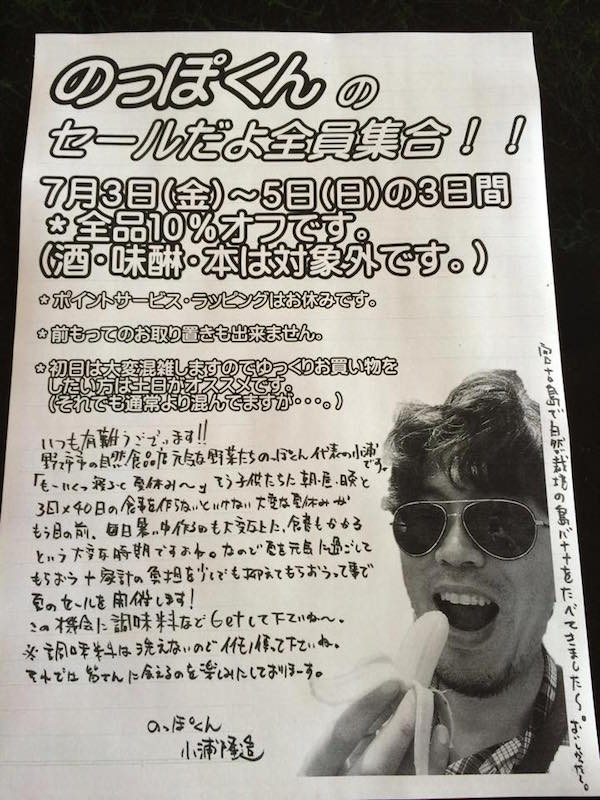 のっぽくんの
セールだよ全員集合！！
7月3日(金)～5日(日)の3日間
*全品10%オフです。
(酒・味醂・本は対象外です。)
*ポイントサービス・ラッピングはお休みです。
*前もってのお取り置きも出来ません。
*初日は大変混雑しますのでゆっくりお買い物を
したい方は土日がオススメです。
(それでも通常より混んでますが・・・。)
いつも有難うございます!!
野々市の自然食品店元気な野菜たちのっぽくん代表の小浦です。
「も～いくつ寝ると夏休み～」そう子供たちに朝・昼・晩と
3回×40日の食事を作らないといけない大変な夏休みが
もう目の前、毎日暑い中作るのも大変な上に、食費もかかる
という大変な時期ですよね。なので夏を元気に過ごして
もらおう+家計の負担を少しでも抑えてもらおうって事で
夏のセールを開催します!
この機会に調味料などGetして下さいね～。
※調味料は洗えないので
って下さいね。
それでは皆さんに会えるのを楽しみにしておりまーす。
のっぽくん
小浦隆造
宮古島で自然栽培の島バナナをたべてきました～。おいしかった～。